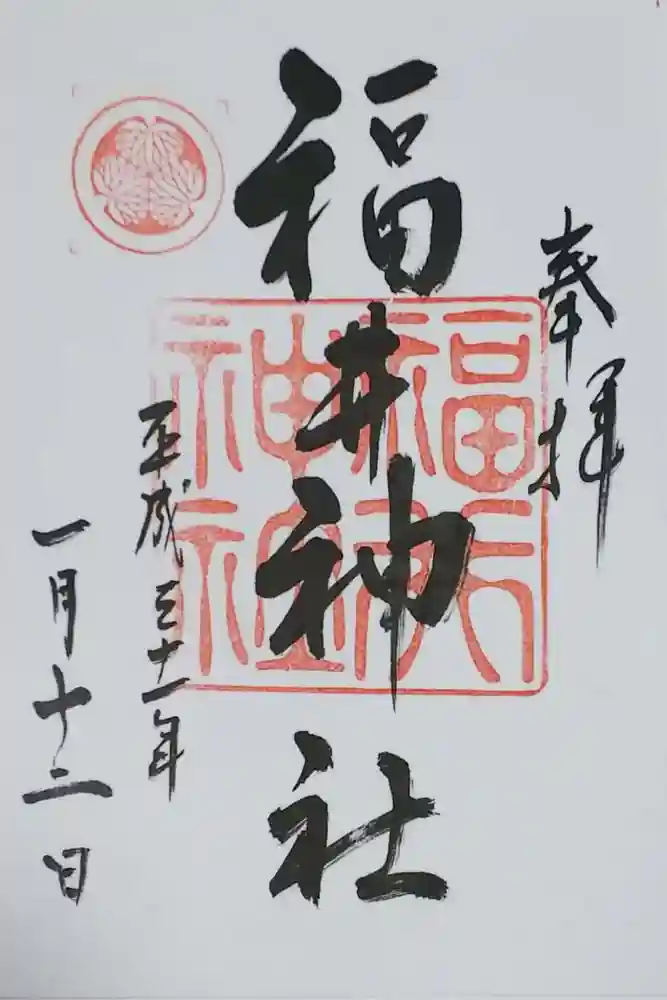 奉拝
福井神社
平成三十一年
一月十二日